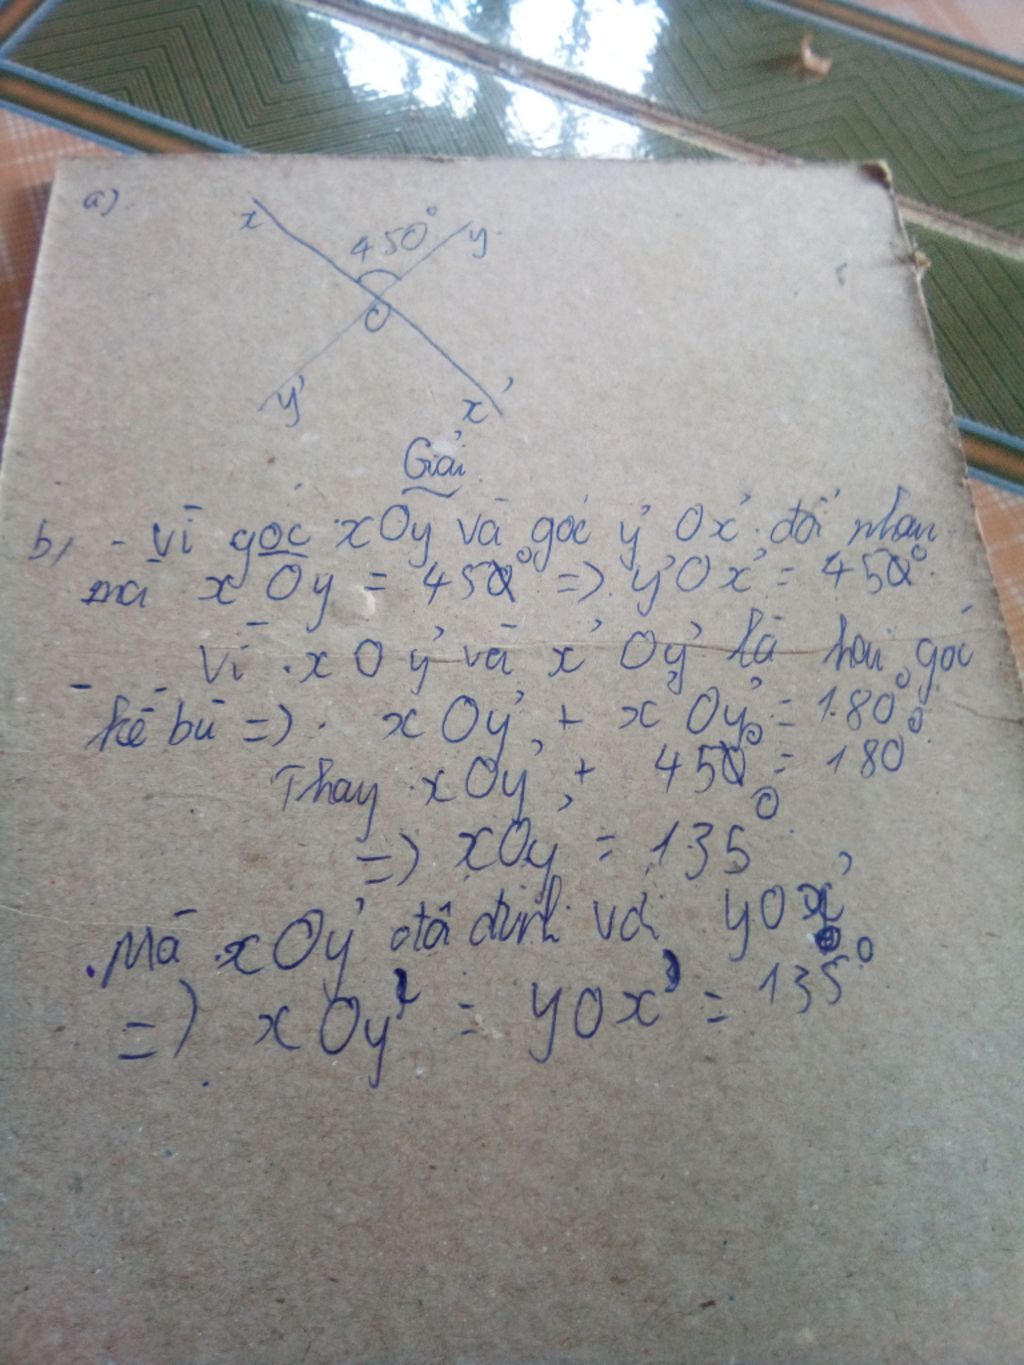 a)
x
450°
y
O
y'
x'
Giải
b, - Vì góc xOy và góc y'Ox' đối nhau
mà xOy = 450° => y'Ox' = 450°
Vì xOy' và x'Oy' là hai góc
kề bù => xOy' + x'Oy' = 180°
Thay xOy' + 450° = 180°
=> xOy' = 135°
Mà xOy' đối đỉnh với yOx'
=> xOy' = yOx' = 135°